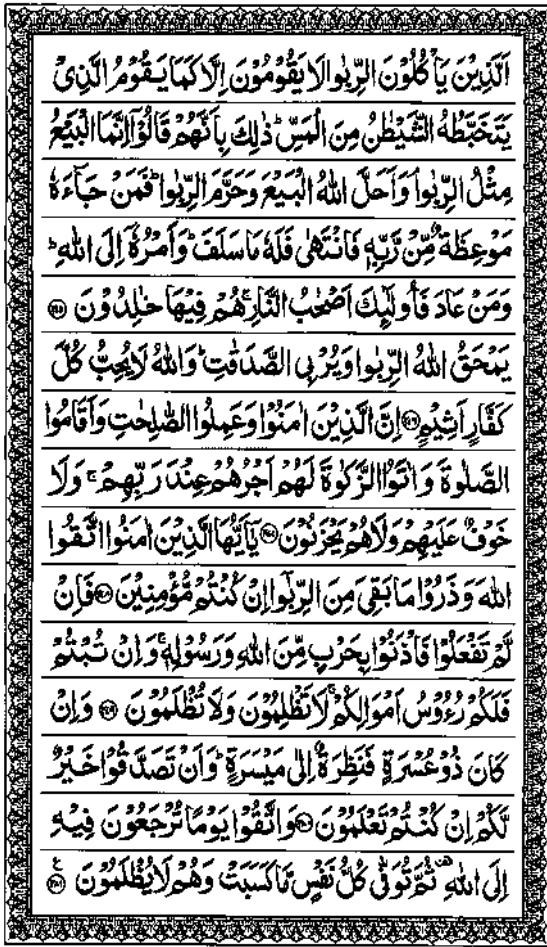 اَلَّذِيْنَ يَاْكُلُوْنَ الرِّبٰوا لَا يَقُوْمُوْنَ اِلَّا كَمَا يَقُوْمُ الَّذِيْ
يَتَخَبَّطُهُ الشَّيْطٰنُ مِنَ الْمَسِّ ؕ ذٰلِكَ بِاَنَّهُمْ قَالُوْۤا اِنَّمَا الْبَيْعُ
مِثْلُ الرِّبٰوا ۘ وَاَحَلَّ اللّٰهُ الْبَيْعَ وَحَرَّمَ الرِّبٰوا ؕ فَمَنْ جَآءَهٗ
مَوْعِظَةٌ مِّنْ رَّبِّهٖ فَانْتَهٰى فَلَهٗ مَا سَلَفَ ؕ وَاَمْرُهٗۤ اِلَى اللّٰهِ ؕ
وَمَنْ عَادَ فَاُولٰٓئِكَ اَصْحٰبُ النَّارِ ۚ هُمْ فِيْهَا خٰلِدُوْنَ ﴿۲۷۵﴾
يَمْحَقُ اللّٰهُ الرِّبٰوا وَيُرْبِى الصَّدَقٰتِ ؕ وَاللّٰهُ لَا يُحِبُّ كُلَّ
كَفَّارٍ اَثِيْمٍ ﴿۲۷۶﴾ اِنَّ الَّذِيْنَ اٰمَنُوْا وَعَمِلُوا الصّٰلِحٰتِ وَاَقَامُوا
الصَّلٰوةَ وَاٰتَوُا الزَّكٰوةَ لَهُمْ اَجْرُهُمْ عِنْدَ رَبِّهِمْ ۚ وَلَا
خَوْفٌ عَلَيْهِمْ وَلَا هُمْ يَحْزَنُوْنَ ﴿۲۷۷﴾ يٰۤاَيُّهَا الَّذِيْنَ اٰمَنُوا اتَّقُوا
اللّٰهَ وَذَرُوْا مَا بَقِيَ مِنَ الرِّبٰۤوا اِنْ كُنْتُمْ مُّؤْمِنِيْنَ ﴿۲۷۸﴾ فَاِنْ
لَّمْ تَفْعَلُوْا فَاْذَنُوْا بِحَرْبٍ مِّنَ اللّٰهِ وَرَسُوْلِهٖ ۚ وَاِنْ تُبْتُمْ
فَلَكُمْ رُءُوْسُ اَمْوَالِكُمْ ۚ لَا تَظْلِمُوْنَ وَلَا تُظْلَمُوْنَ ﴿۲۷۹﴾ وَاِنْ
كَانَ ذُوْ عُسْرَةٍ فَنَظِرَةٌ اِلٰى مَيْسَرَةٍ ؕ وَاَنْ تَصَدَّقُوْا خَيْرٌ
لَّكُمْ اِنْ كُنْتُمْ تَعْلَمُوْنَ ﴿۲۸۰﴾ وَاتَّقُوْا يَوْمًا تُرْجَعُوْنَ فِيْهِ
اِلَى اللّٰهِ ۗ ثُمَّ تُوَفّٰى كُلُّ نَفْسٍ مَّا كَسَبَتْ وَهُمْ لَا يُظْلَمُوْنَ ﴿۲۸۱﴾ ع